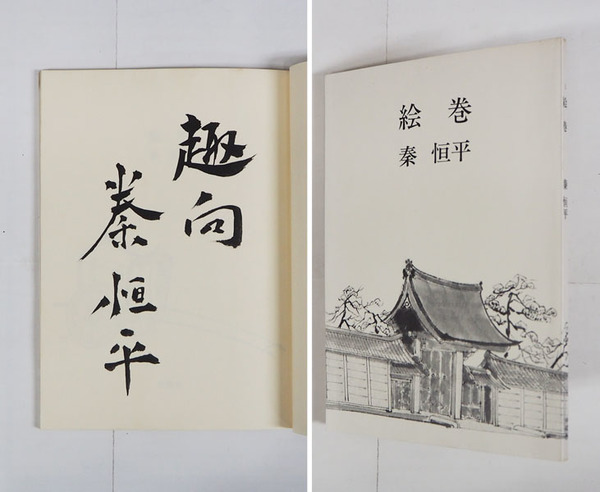 趣向
秦恒平
絵巻
秦恒平
絵巻 秦恒平